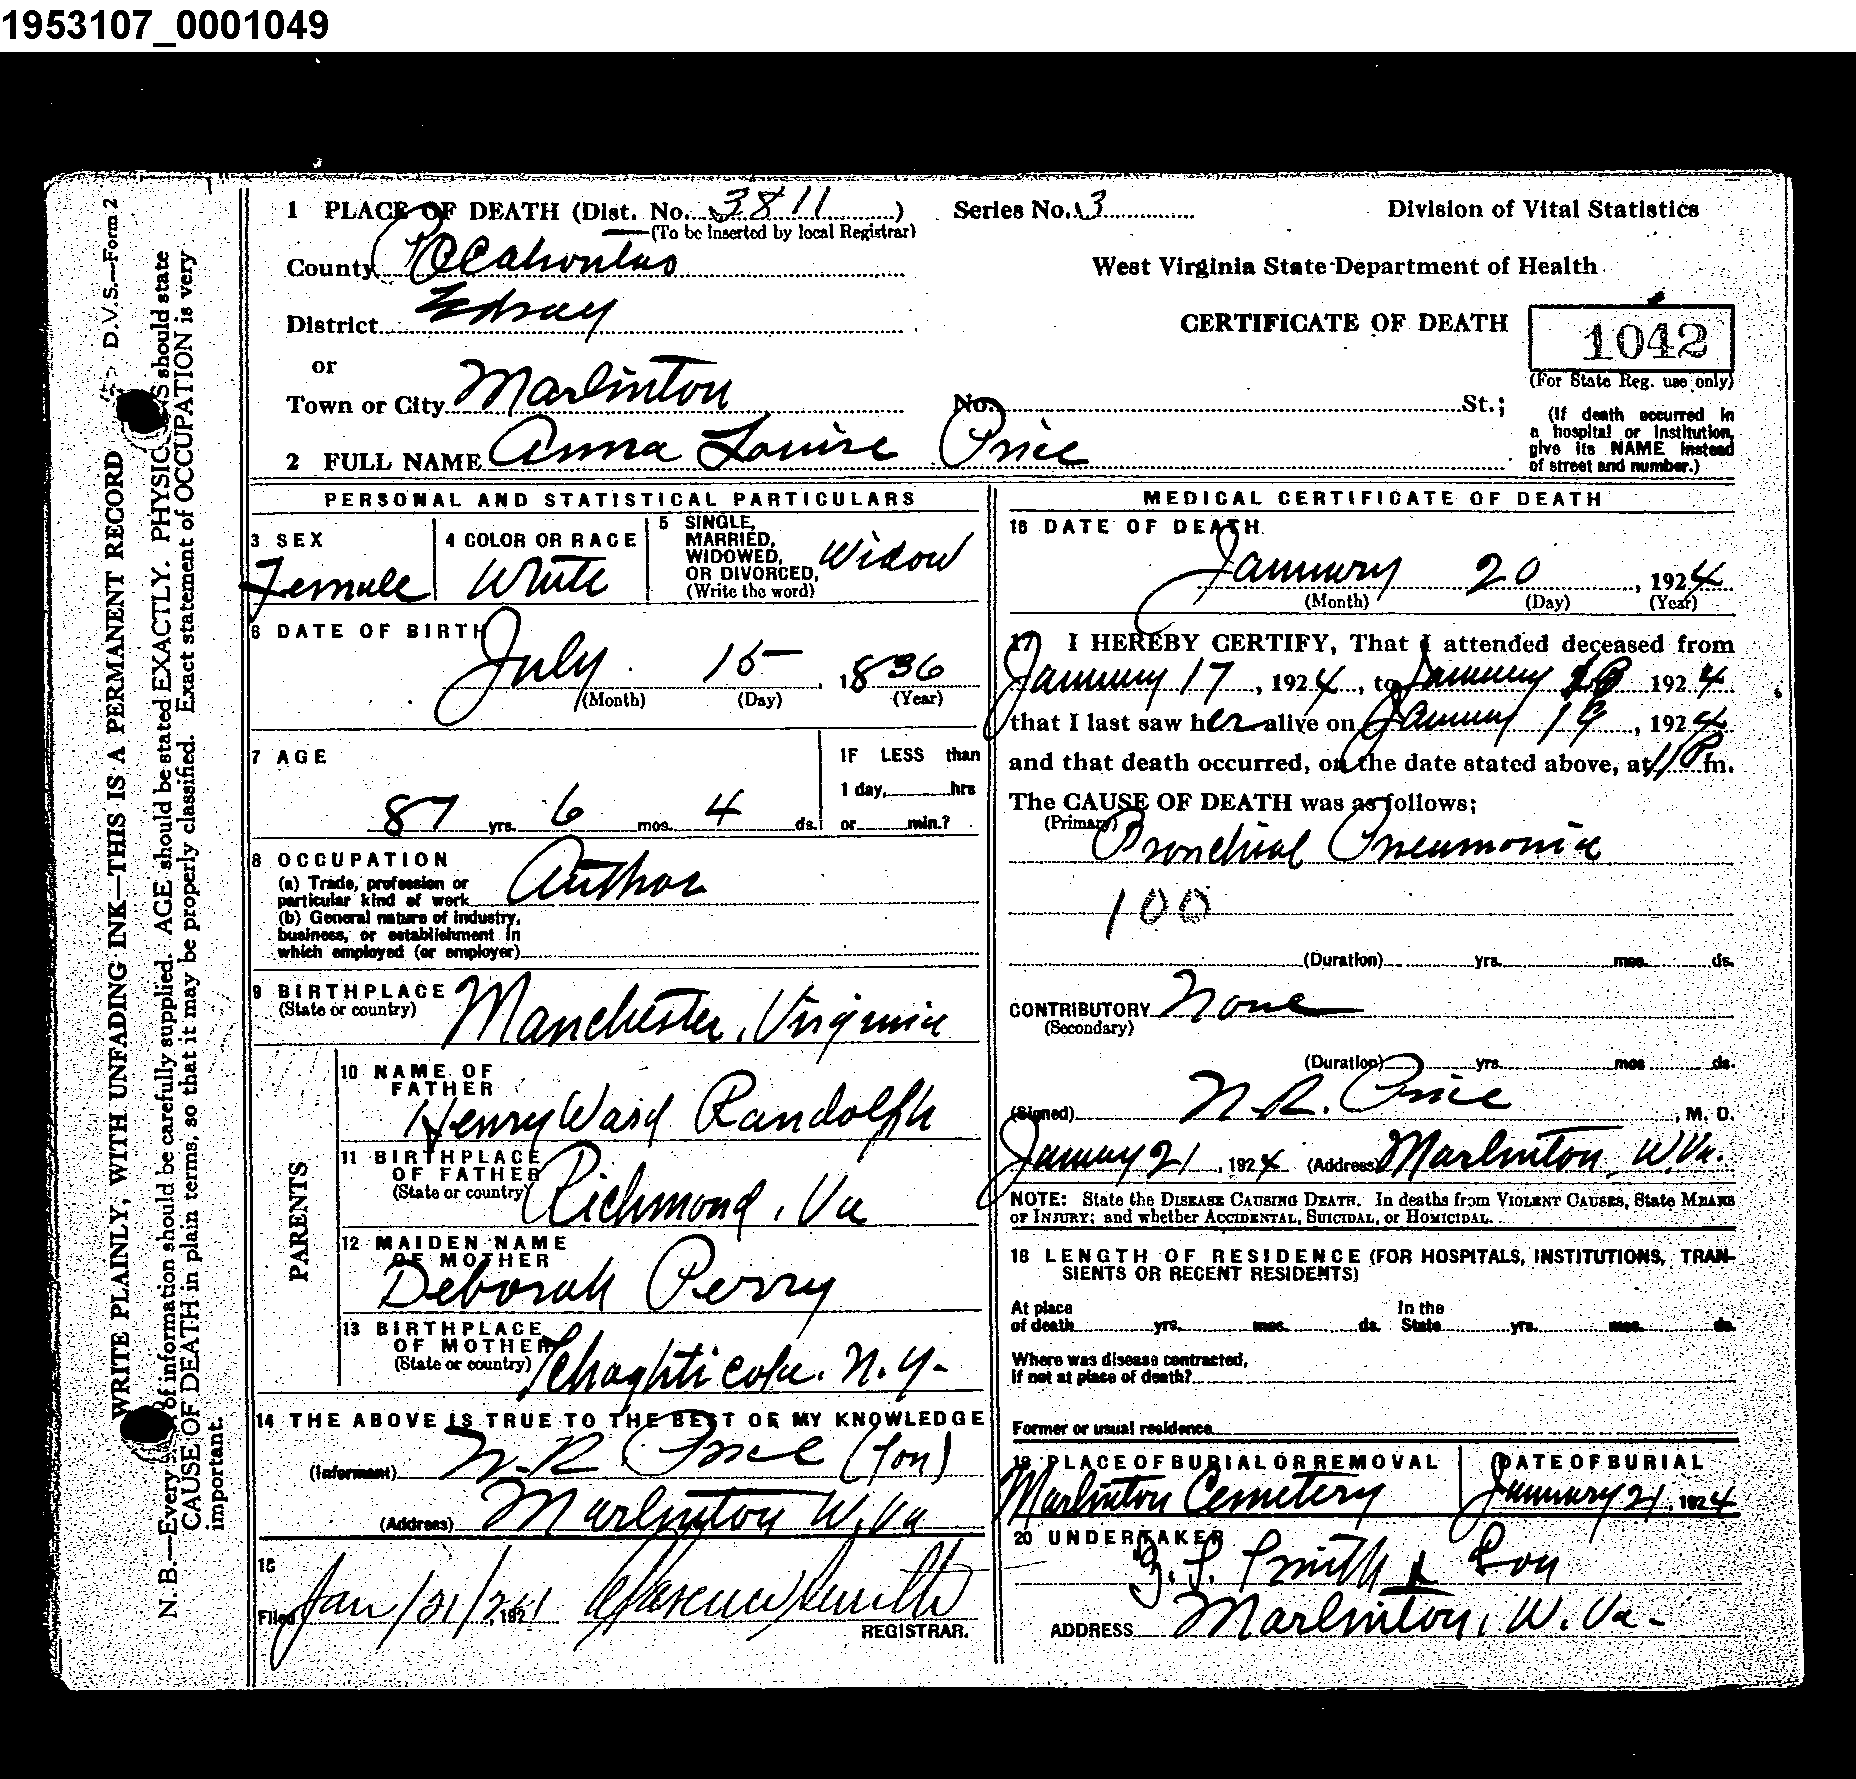 1953107_0001049
D.V.S.—Form 2
WRITE PLAINLY, WITH UNFADING INK—THIS IS A PERMANENT RECORD
N. B.—Every of information should be carefully supplied. AGE should be stated EXACTLY. PHYSIC S should state
CAUSE OF DEATH in plain terms, so that it may be properly classified. Exact statement of OCCUPATION is very
important.
1 PLACE OF DEATH (Dist. No. 3811) Series No. 3 Division of Vital Statistics
(To be inserted by local Registrar)
County Pocahontas West Virginia State Department of Health
District Edray CERTIFICATE OF DEATH 1042
or (For State Reg. use only)
Town or City Marlinton No. St.;
(If death occurred in
a hospital or institution,
give its NAME instead
of street and number.)
2 FULL NAME Anna Louise Price
PERSONAL AND STATISTICAL PARTICULARS
3 SEX
Female
4 COLOR OR RACE
White
5 SINGLE,
MARRIED,
WIDOWED,
OR DIVORCED,
(Write the word)
Widow
6 DATE OF BIRTH
July 15, 1836
(Month) (Day) (Year)
7 AGE
87 yrs. 6 mos. 4 ds.
IF LESS than
1 day, hrs
or min.?
8 OCCUPATION
(a) Trade, profession or
particular kind of work Author
(b) General nature of industry,
business, or establishment in
which employed (or employer)
9 BIRTHPLACE
(State or country) Manchester, Virginia
PARENTS
10 NAME OF
FATHER
Henry Ward Randolph
11 BIRTHPLACE
OF FATHER
(State or country) Richmond, Va
12 MAIDEN NAME
OF MOTHER
Deborah Perry
13 BIRTHPLACE
OF MOTHER
(State or country) Schaghticoke. N.Y-
14 THE ABOVE IS TRUE TO THE BEST OF MY KNOWLEDGE
(Informant) N. R. Price (Son)
(Address) Marlinton W. Va
15
Filed Jan/21/24, 192 Smith
REGISTRAR.
MEDICAL CERTIFICATE OF DEATH
16 DATE OF DEATH
January 20, 1924
(Month) (Day) (Year)
17 I HEREBY CERTIFY, That I attended deceased from
January 17, 1924, to January 1924
that I last saw her alive on January 19, 1924
and that death occurred, on the date stated above, at 11 P m.
The CAUSE OF DEATH was as follows;
(Primary)
Bronchial Pneumonia
100
(Duration) yrs. mos. ds.
CONTRIBUTORY None
(Secondary)
(Duration) yrs. mos ds.
(Signed) N. R. Price, M. D.
January 21, 1924 (Address) Marlinton, W. Va.
NOTE: State the DISEASE CAUSING DEATH. In deaths from VIOLENT CAUSES, State MEANS
OF INJURY; and whether ACCIDENTAL, SUICIDAL, or HOMICIDAL.
18 LENGTH OF RESIDENCE (FOR HOSPITALS, INSTITUTIONS, TRAN-
SIENTS OR RECENT RESIDENTS)
At place
of death yrs. mos. ds.
In the
State yrs. mos. ds.
Where was disease contracted,
If not at place of death?
Former or usual residence
19 PLACE OF BURIAL OR REMOVAL
Marlinton Cemetery
DATE OF BURIAL
January 21, 1924
20 UNDERTAKER
Smith & Son
ADDRESS Marlinton, W. Va-